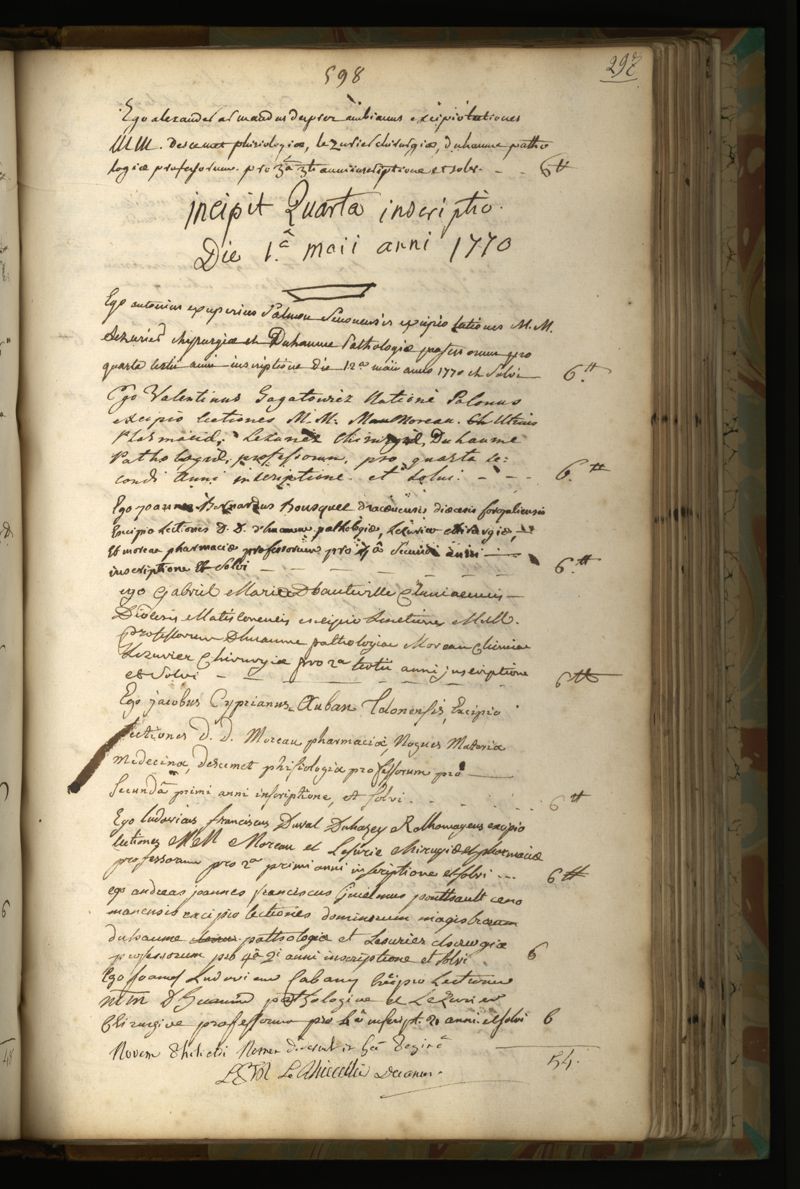 598
297
Ego alexander armandus duprez ambianus excipio lectiones
MM. Descemet phisiologiæ, lezurier chirurgiæ, duhaume patho
logiæ professorum pro 3a 3ti anni inscriptione et solvi - - 6tt
incipit Quarta inscriptio.
Die 1.â maii anni 1770
Ego antonius exuperius Salmon Senonensis excipio lectiones M.M.
Lezurier chirurgiæ et Duhaume Pathologiæ professorum pro
quarta tertii anni inscriptione die 12a maii anno 1770 et Solvi 6.tt
Ego Valentinus Gagatowiez Natione Polonus
excipio lectiones M.M. Moreau
Lezurier Chirurgiæ, Duhaume
Pathologiæ, professorum, pro quarta se:
condi anni inscriptione et Solvi. - - - 6.tt
Ego joannes Bernardus Bousquet dracœnensis diœcesis forojuliensis
Excipio Lectiones D. D. duhaume pathologiæ, Lezurier chirurgiæ,
Et moreau pharmaciæ professorum pro 4â Secundi anni
inscriptione Et Solvi - - - 6.tt
ego Gabriel Marie Dhauteville Cluniacensis
Diocesis Matisconensis excipio Lectiones M.M.
Professorum Duhaume pathologiæ Moreau Chimiæ
Lezurier Chirurgiæ pro 2a tertii anni inscriptione
et Solvi - - - 6tt
Ego jacobus Cyprianus Auban Tolonensis, Excipio
Lectiones D. D. Moreau pharmaciæ, Nogues Materia
Medecinæ, descemet phisiologiæ professorum pro
Secundâ primi anni inscriptione, et solvi. . . . 6tt
Ego ludovicus franciscus Duval Duhazey Rothomageus excipio
lectiones MM Moreau et Lesurie chirurgiæ et pharmaciæ
professorum pro 2a primi anni inscriptione et solvi ... 6tt
ego andreas joannes franciscus Guielmus ponthault ceno
manensis excipio lectiones dominorum magistrorum
duhaume pathologiæ et Lesurier chirurgiæ
professorum pro 4â 2i anni inscriptione et solvi. 6
Ego Joannes Ludovicus Cabany Excipio Lectiones
mm Duhaume pathologiæ et Lezurier
Chirurgiæ professorum pro 4â inscript. 2i anni et solvi 6
Novem
54.
Decanus.